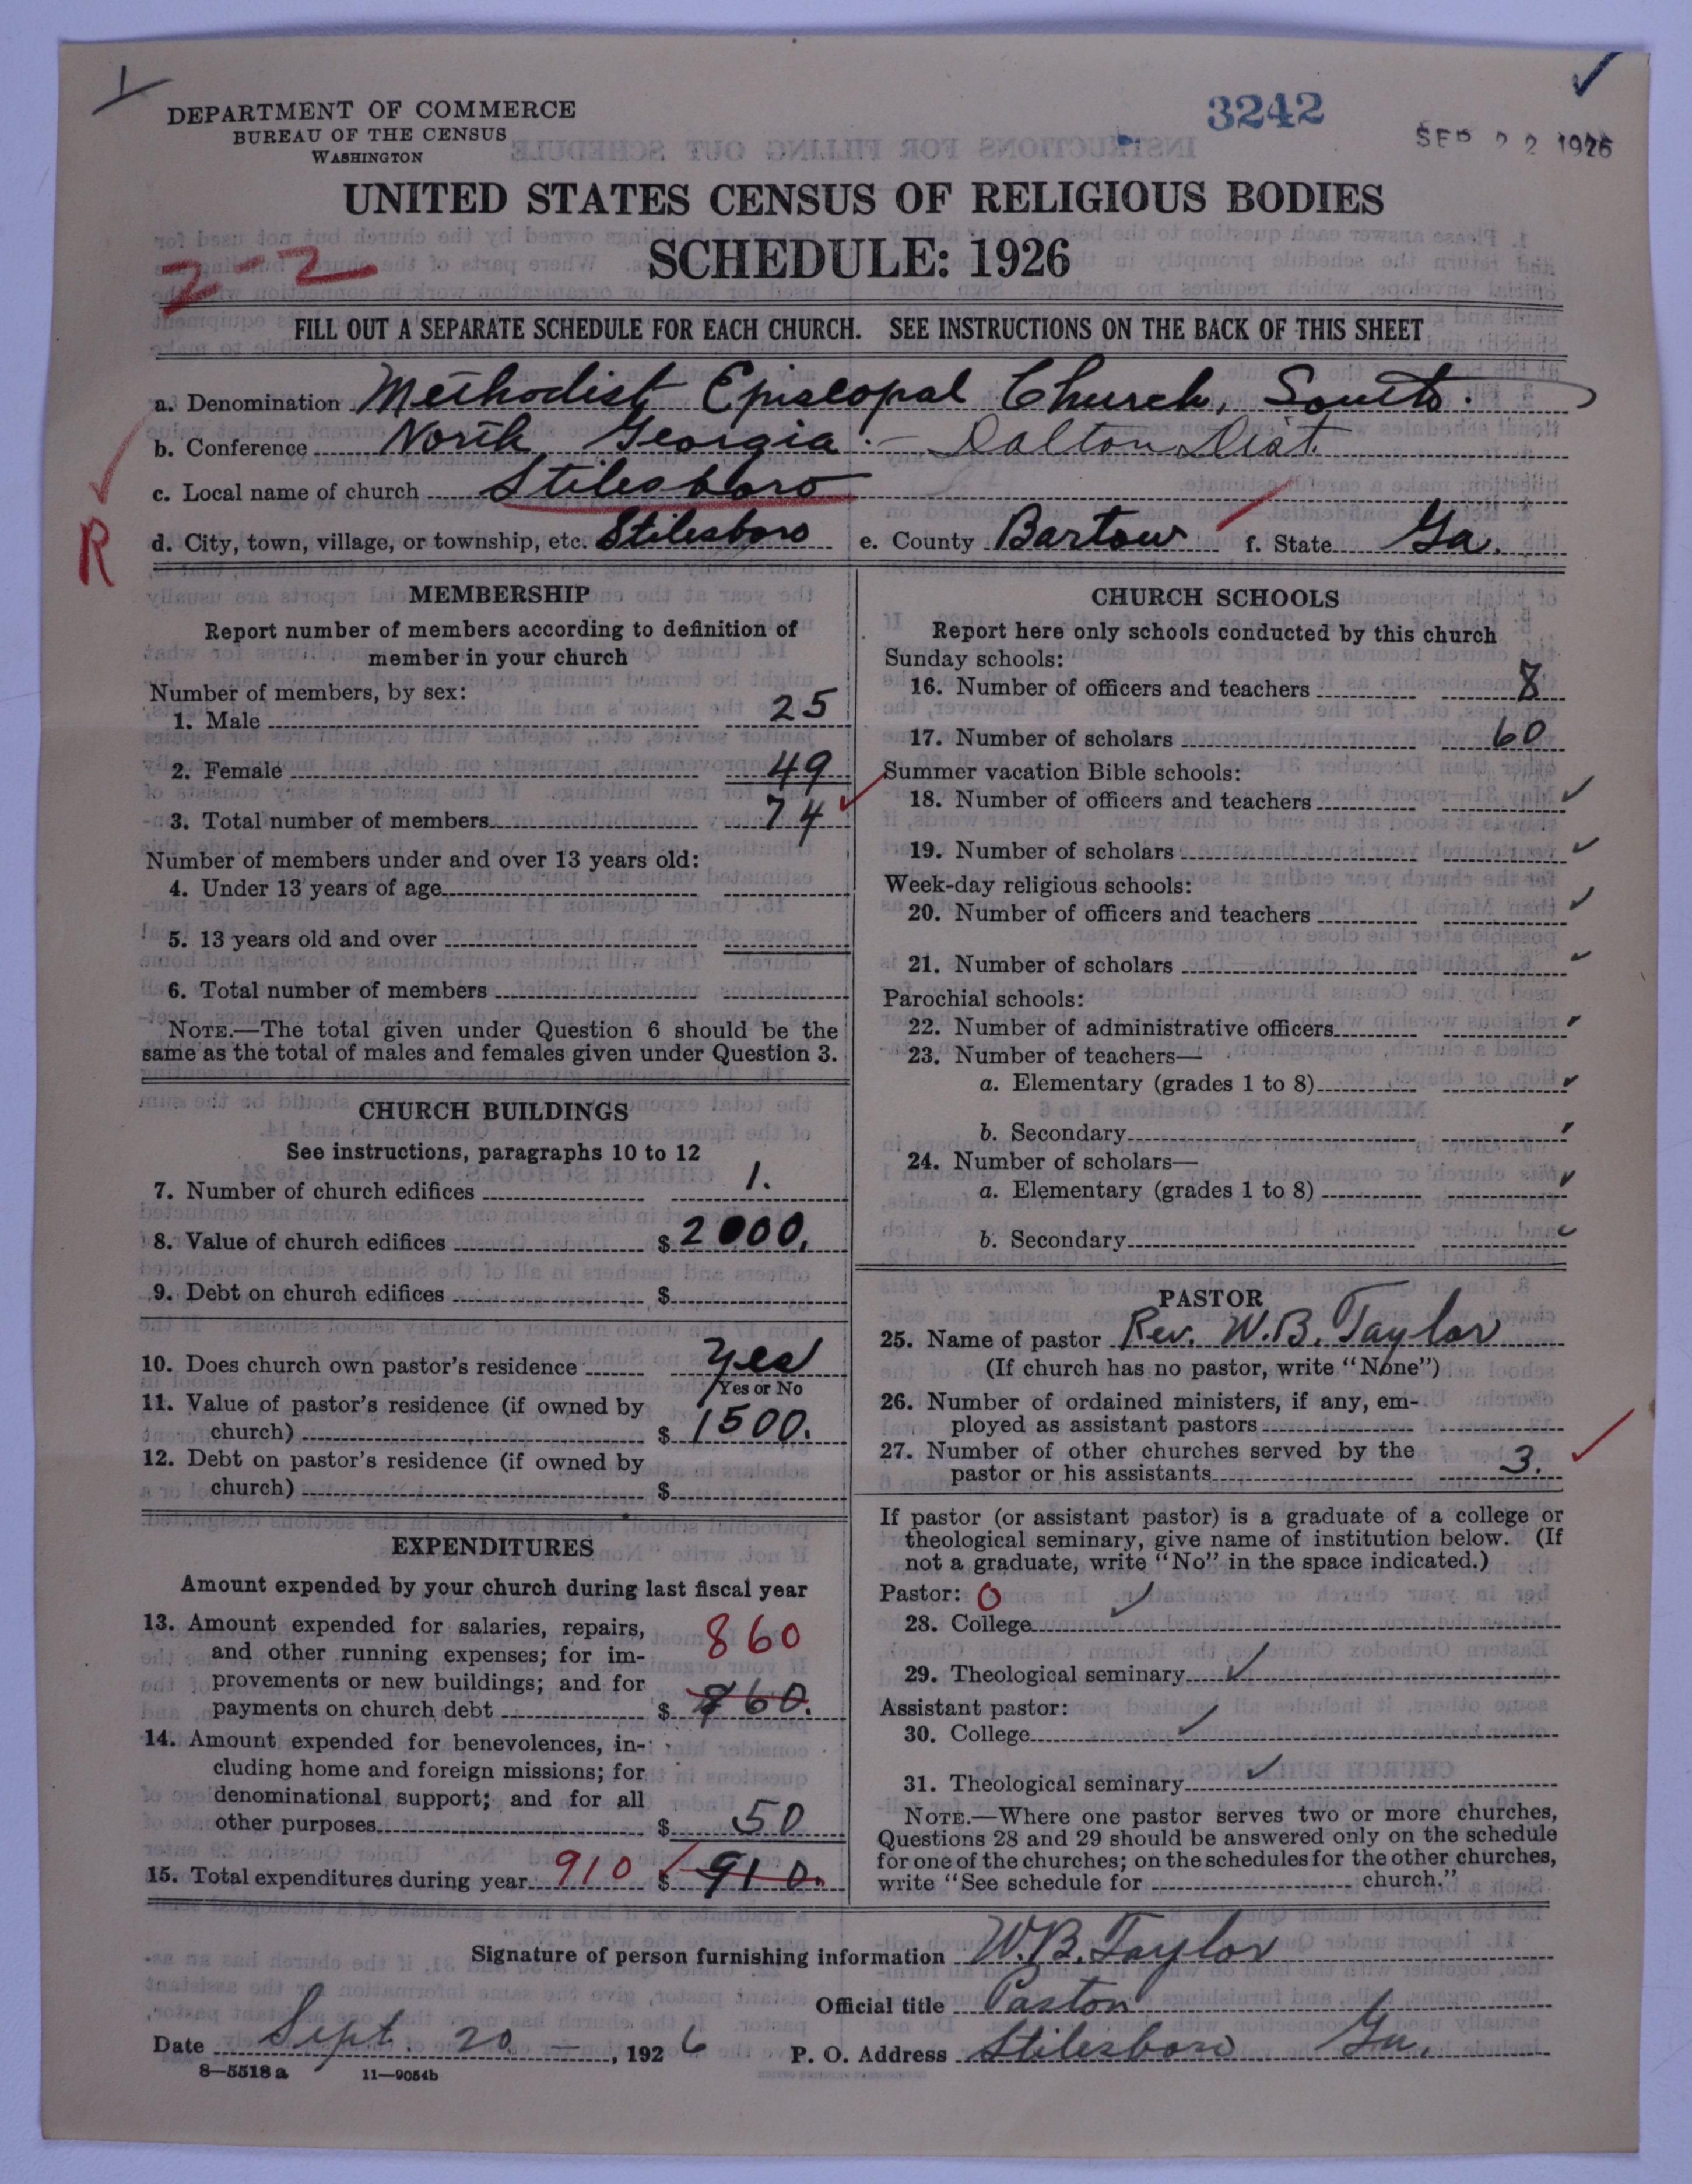 DEPARTMENT OF COMMERCE
BUREAU OF THE CENSUS
WASHINGTON
3242
SEP 22 1926
UNITED STATES CENSUS OF RELIGIOUS BODIES
SCHEDULE: 1926
2-2
FILL OUT A SEPARATE SCHEDULE FOR EACH CHURCH. SEE INSTRUCTIONS ON THE BACK OF THIS SHEET
a. Denomination Methodist Episcopal Church, South.
b. Conference North Georgia.- Dalton Dist.
c. Local name of church Stilesboro
R
d. City, town, village, or township, etc. Stilesboro e. County Bartow f. State Ga.
MEMBERSHIP
Report number of members according to definition of
member in your church
Number of members, by sex:
1. Male 25
2. Female 49
3. Total number of members 74
Number of members under and over 13 years old:
4. Under 13 years of age
5. 13 years old and over
6. Total number of members
NOTE.—The total given under Question 6 should be the
same as the total of males and females given under Question 3.
CHURCH BUILDINGS
See instructions, paragraphs 10 to 12
7. Number of church edifices 1.
8. Value of church edifices $ 2000.
9. Debt on church edifices $
10. Does church own pastor's residence yes
Yes or No
11. Value of pastor's residence (if owned by
church) $ 1500.
12. Debt on pastor's residence (if owned by
church) $
EXPENDITURES
Amount expended by your church during last fiscal year
13. Amount expended for salaries, repairs, 860
and other running expenses; for im-
provements or new buildings; and for
payments on church debt $ 860.
14. Amount expended for benevolences, in-
cluding home and foreign missions; for
denominational support; and for all
other purposes $ 50
15. Total expenditures during year 910 $ 910.
CHURCH SCHOOLS
Report here only schools conducted by this church
Sunday schools:
16. Number of officers and teachers 8
17. Number of scholars 60
Summer vacation Bible schools:
18. Number of officers and teachers
19. Number of scholars
Week-day religious schools:
20. Number of officers and teachers
21. Number of scholars
Parochial schools:
22. Number of administrative officers
23. Number of teachers—
a. Elementary (grades 1 to 8)
b. Secondary
24. Number of scholars—
a. Elementary (grades 1 to 8)
b. Secondary
PASTOR
25. Name of pastor Rev. W.B. Taylor
(If church has no pastor, write "None")
26. Number of ordained ministers, if any, em-
ployed as assistant pastors
27. Number of other churches served by the
pastor or his assistants 3.
If pastor (or assistant pastor) is a graduate of a college or
theological seminary, give name of institution below. (If
not a graduate, write "No" in the space indicated.)
Pastor: 0
28. College
29. Theological seminary
Assistant pastor:
30. College
31. Theological seminary
NOTE.—Where one pastor serves two or more churches,
Questions 28 and 29 should be answered only on the schedule
for one of the churches; on the schedules for the other churches,
write "See schedule for church."
Signature of person furnishing information W.B. Taylor
Official title Pastor
Date Sept. 20 -, 1926 P. O. Address Stilesboro Ga.
8—5518 a 11—9054b